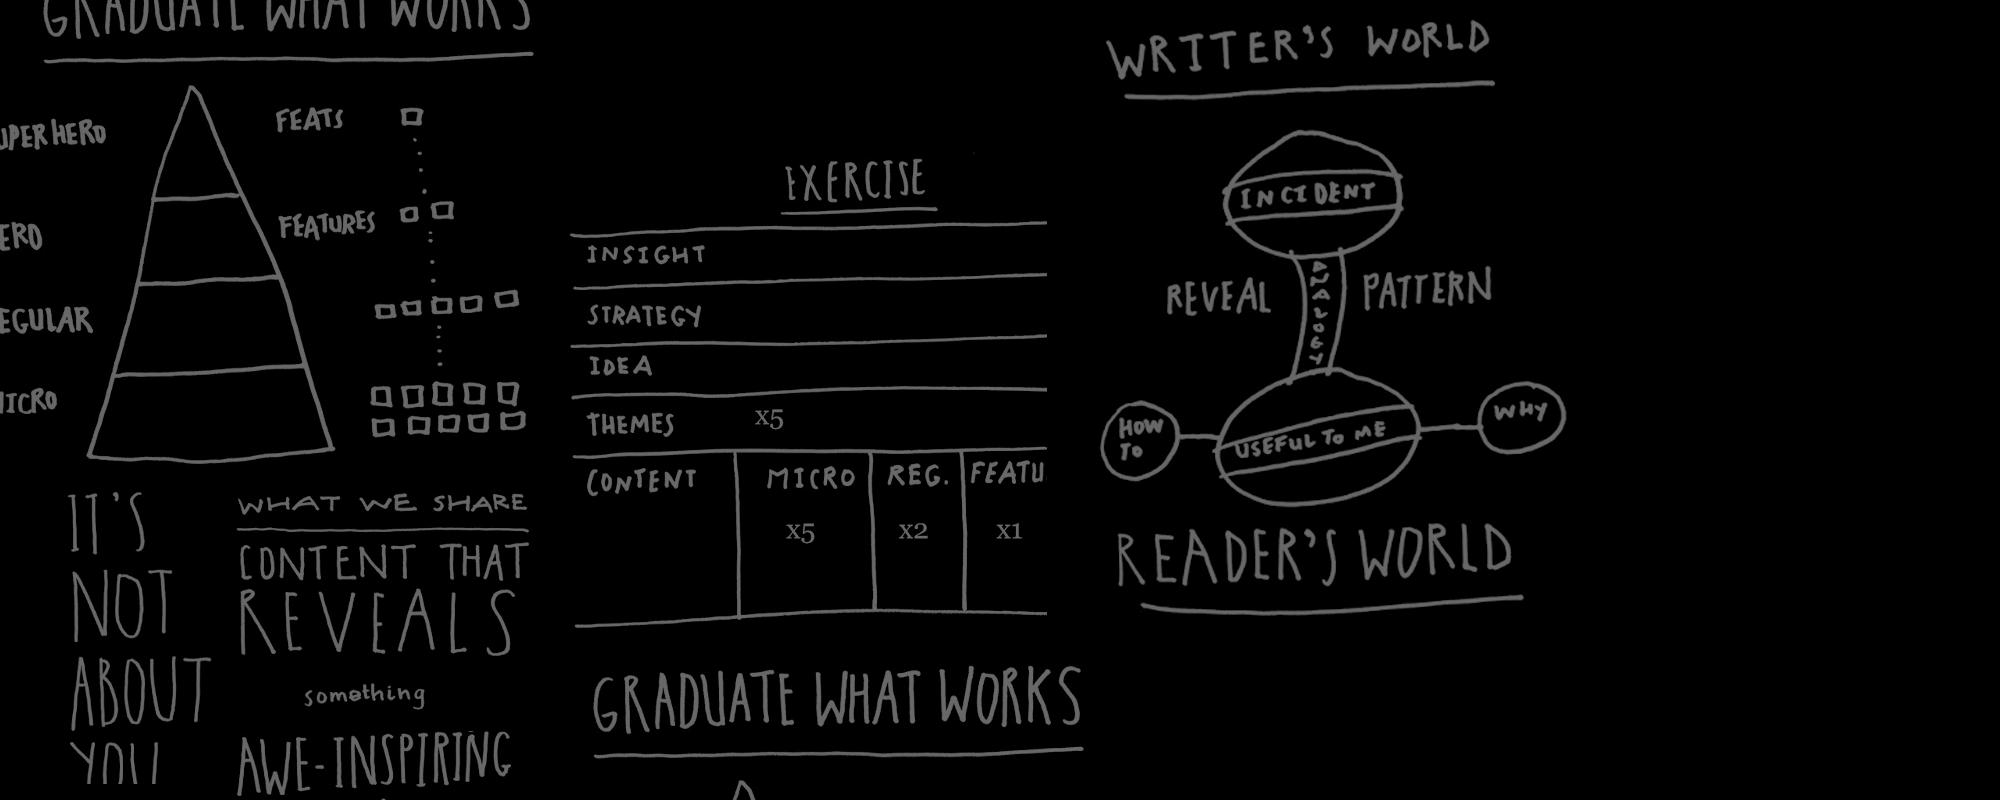 GRADUATE WHAT WORKS
UPER HERO
FEATS
ERO
FEATURES
EGULAR
MICRO
IT'S
NOT
ABOUT
YOU
WHAT WE SHARE
CONTENT THAT
REVEALS
something
AWE-INSPIRING
EXERCISE
INSIGHT
STRATEGY
IDEA
THEMES x5
CONTENT MICRO REG. FEATU
x5 x2 x1
GRADUATE WHAT WORKS
WRITER'S WORLD
INCIDENT
REVEAL ANALOGY PATTERN
HOW TO
USEFUL TO ME
WHY
READER'S WORLD